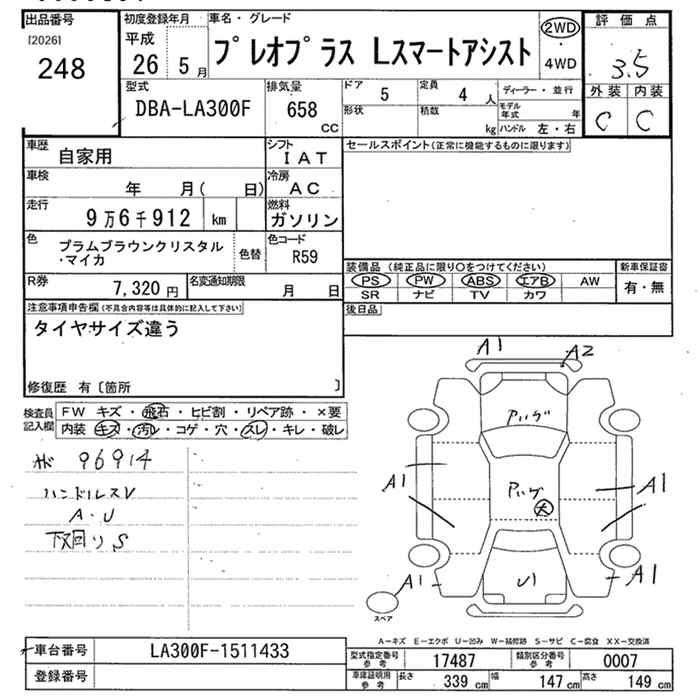 出品番号
[2026]
248
初度登録年月
平成
26 5月
車名・グレード
プレオプラス Lスマートアシスト
2WD
・
4WD
評価点
3.5
外装 内装
C C
型式
DBA-LA300F
排気量
658
CC
ドア
5
定員
4 人
ディーラー・並行
形状
積載
kg
モデル年式 年
ハンドル 左・右
車歴
自家用
シフト
IAT
車検
年 月( 日)
冷房
AC
走行
9万6千912 km
燃料
ガソリン
色
プラムブラウンクリスタル
・マイカ
色替
色コード
R59
R券
7,320円
名変通知期限
月 日
セールスポイント(正常に機能するものに限ります)
装備品 (純正品に限り○をつけてください)
新車保証書
PS PW ABS エアB AW
有・無
SR ナビ TV カワ
後日品
注意事項申告欄(不具合内容等は具体的に記入して下さい)
タイヤサイズ違う
修復歴 有〔箇所 〕
検査員
記入欄
FW キズ・飛石・ヒビ割・リペア跡・×要
内装 キズ・汚レ・コゲ・穴・スレ・キレ・破レ
96914
ハンドルスレ
A・U
下回りS
A1
A2
アバタ
A1
A1
大
A1
U1
A1
スペア
A-キズ E-エクボ U-凹み W-補修跡 S-サビ C-腐食 XX-交換済
車台番号
LA300F-1511433
登録番号
型式指定番号
参考
17487
類別区分番号
参考
0007
車庫証明用
参考
長さ
339 cm
幅
147 cm
高さ
149 cm